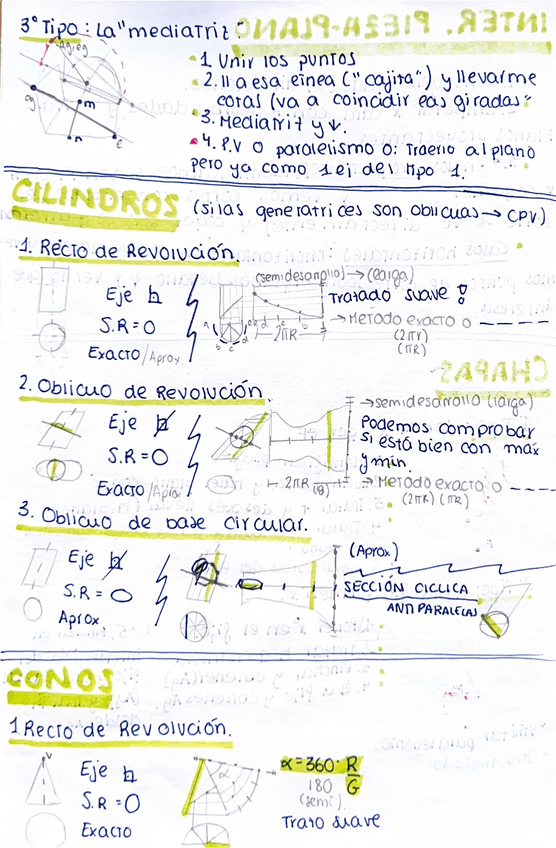 3º Tipo: La "mediatriz"
ag, eg
a
m
n
e
• 1. Unir los puntos
• 2. ll a esa línea ("cajita") y llevarme
cotas (va a coincidir las giradas"
• 3. Mediatriz y ↓.
• 4. P.V o paralelismo o: Traerlo al plano
pero ya como 1 ej del tipo 1.
CILINDROS (si las generatrices son oblicuas → CPV)
1. Recto de Revolución.
Eje
S.R = O
Exacto/Aprox.
(semidesarrollo) → (larga)
Trazado suave !
→ Metodo exacto o -----
(2πr)
(πR)
a b c d
2πR
2. Oblicuo de Revolución.
Eje
S.R = O
Exacto/Aprox
2πR
→ semidesarrollo (larga)
Podemos comprobar
si está bien con max
y min.
→ Metodo exacto o -----
(2πR) (πR)
3. Oblicuo de base circular.
Eje
S.R = O
Aprox
(Aprox)
SECCIÓN CICLICA
ANTIPARALELAS
CONOS
1 Recto de Revolución.
V
Eje
S.R = O
Exacto
α
α = 360· R/G
180
(semi).
Trazo suave